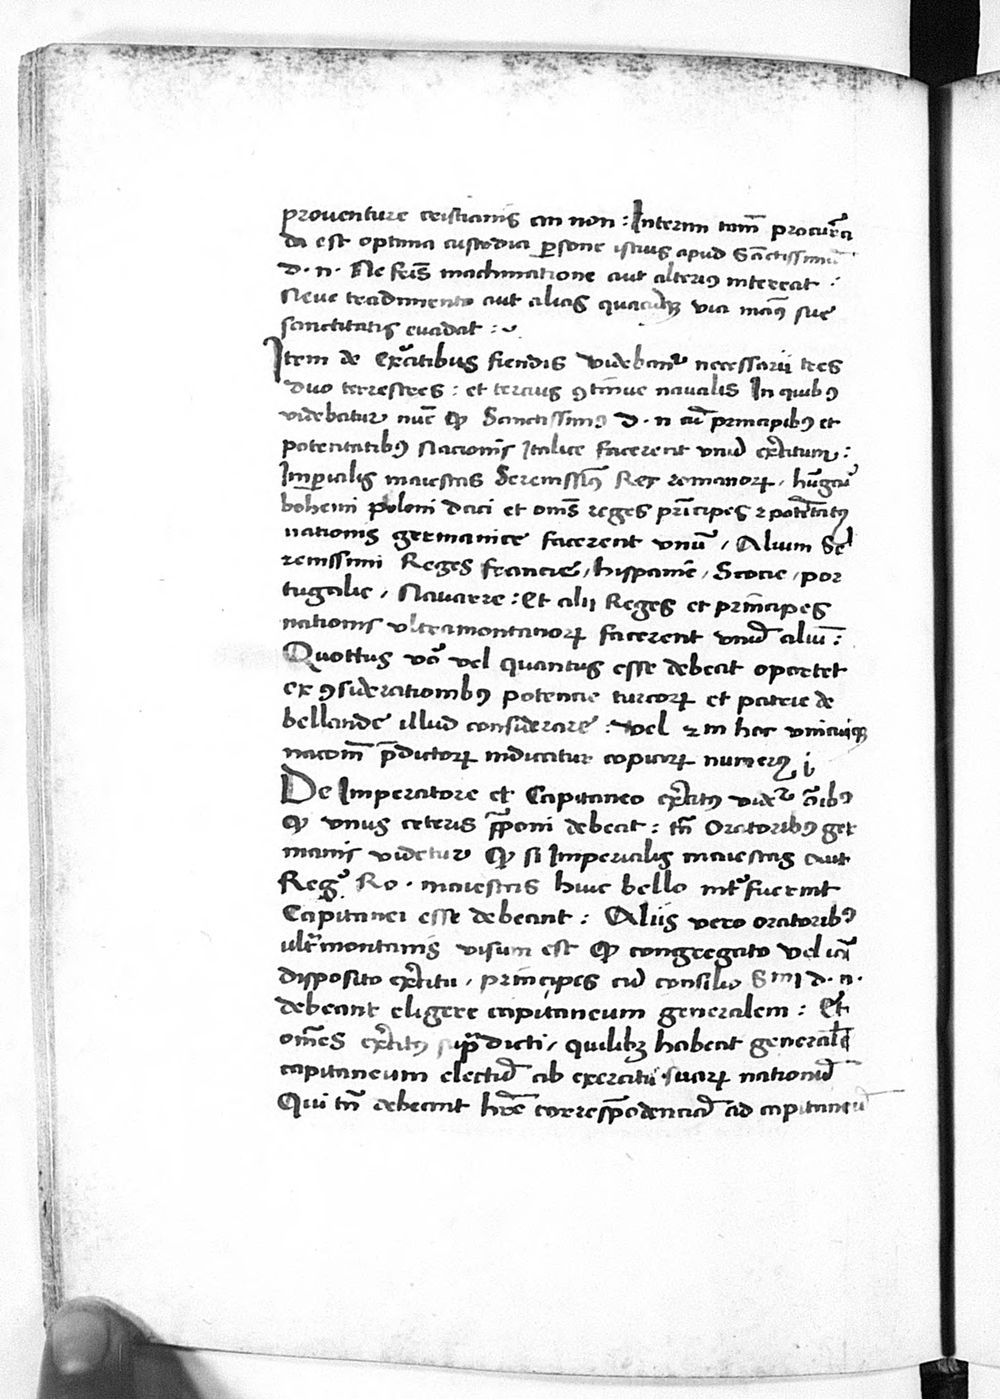 proventure cristianis an non : Interim tam̄ procurā
da est optima custodia ꝑsone istius apud Sāctissimū
d. n. Ne fr̄is machinatione aut alteriꝰ intereat :
Neve tradimento aut alias quacūqꝫ via manꝰ sue
sanctitatis evadat :
Item de exc̄itibus fiendis videbant᷑ necessarii tres
duo terrestres : et tercius ꝯtinue navalis In quibꝰ
videbatur nūc ꝙ Sanctissimꝰ d. n cū principibꝰ et
potentatibꝰ Nacionis Italice facerent unū exc̄itum :
Imꝑialis maiestas Serenissimꝰ Rex romanoꝝ, hūgari
bohemi poloni daci et om̄s reges prīcipes ⁊ potētatꝰ
nationis germanice facerent unū, Alium Se
renissimi Reges francie, hispanie, Scocie, por
tugalie, Navarre : Et alii Reges et principes
nationis ultramontanoꝝ facerent unū aliū :
Quottus vō vel quantus esse debeat oportet
ex ꝯsiderationibꝰ potencie turcoꝝ et patrie de
bellande illud considerare : vel ⁊ in hoc unicuiqꝫ
nacom̄ p̄dictoꝝ indicatur copiaꝝ numerꝰ
De Imperatore et Capitaneo exc̄itꝰ videt᷑ oībꝰ
ꝙ unus ceteris p̄poni debeat : tn̄ Oratoribꝰ ger
manis videtur ꝙ si Imperialis maiestas aut
Reg. Ro. maiestas huic bello int᷑fuerint
Capitanei esse debeant : Aliis vero oratoribꝰ
ult᷑montanis visum est ꝙ congregato vel iā
disposito exc̄itu, principes cū consilio Smi d. n.
debeant eligere capitaneum generalem : Et
om̄es exc̄itꝰ sup̄dicti, quilibꝫ habeat generalē
capitaneum electū ab exercitu suaꝝ nationū
Qui tn̄ debeant hr̄e correspōdenciā ad capitaneū